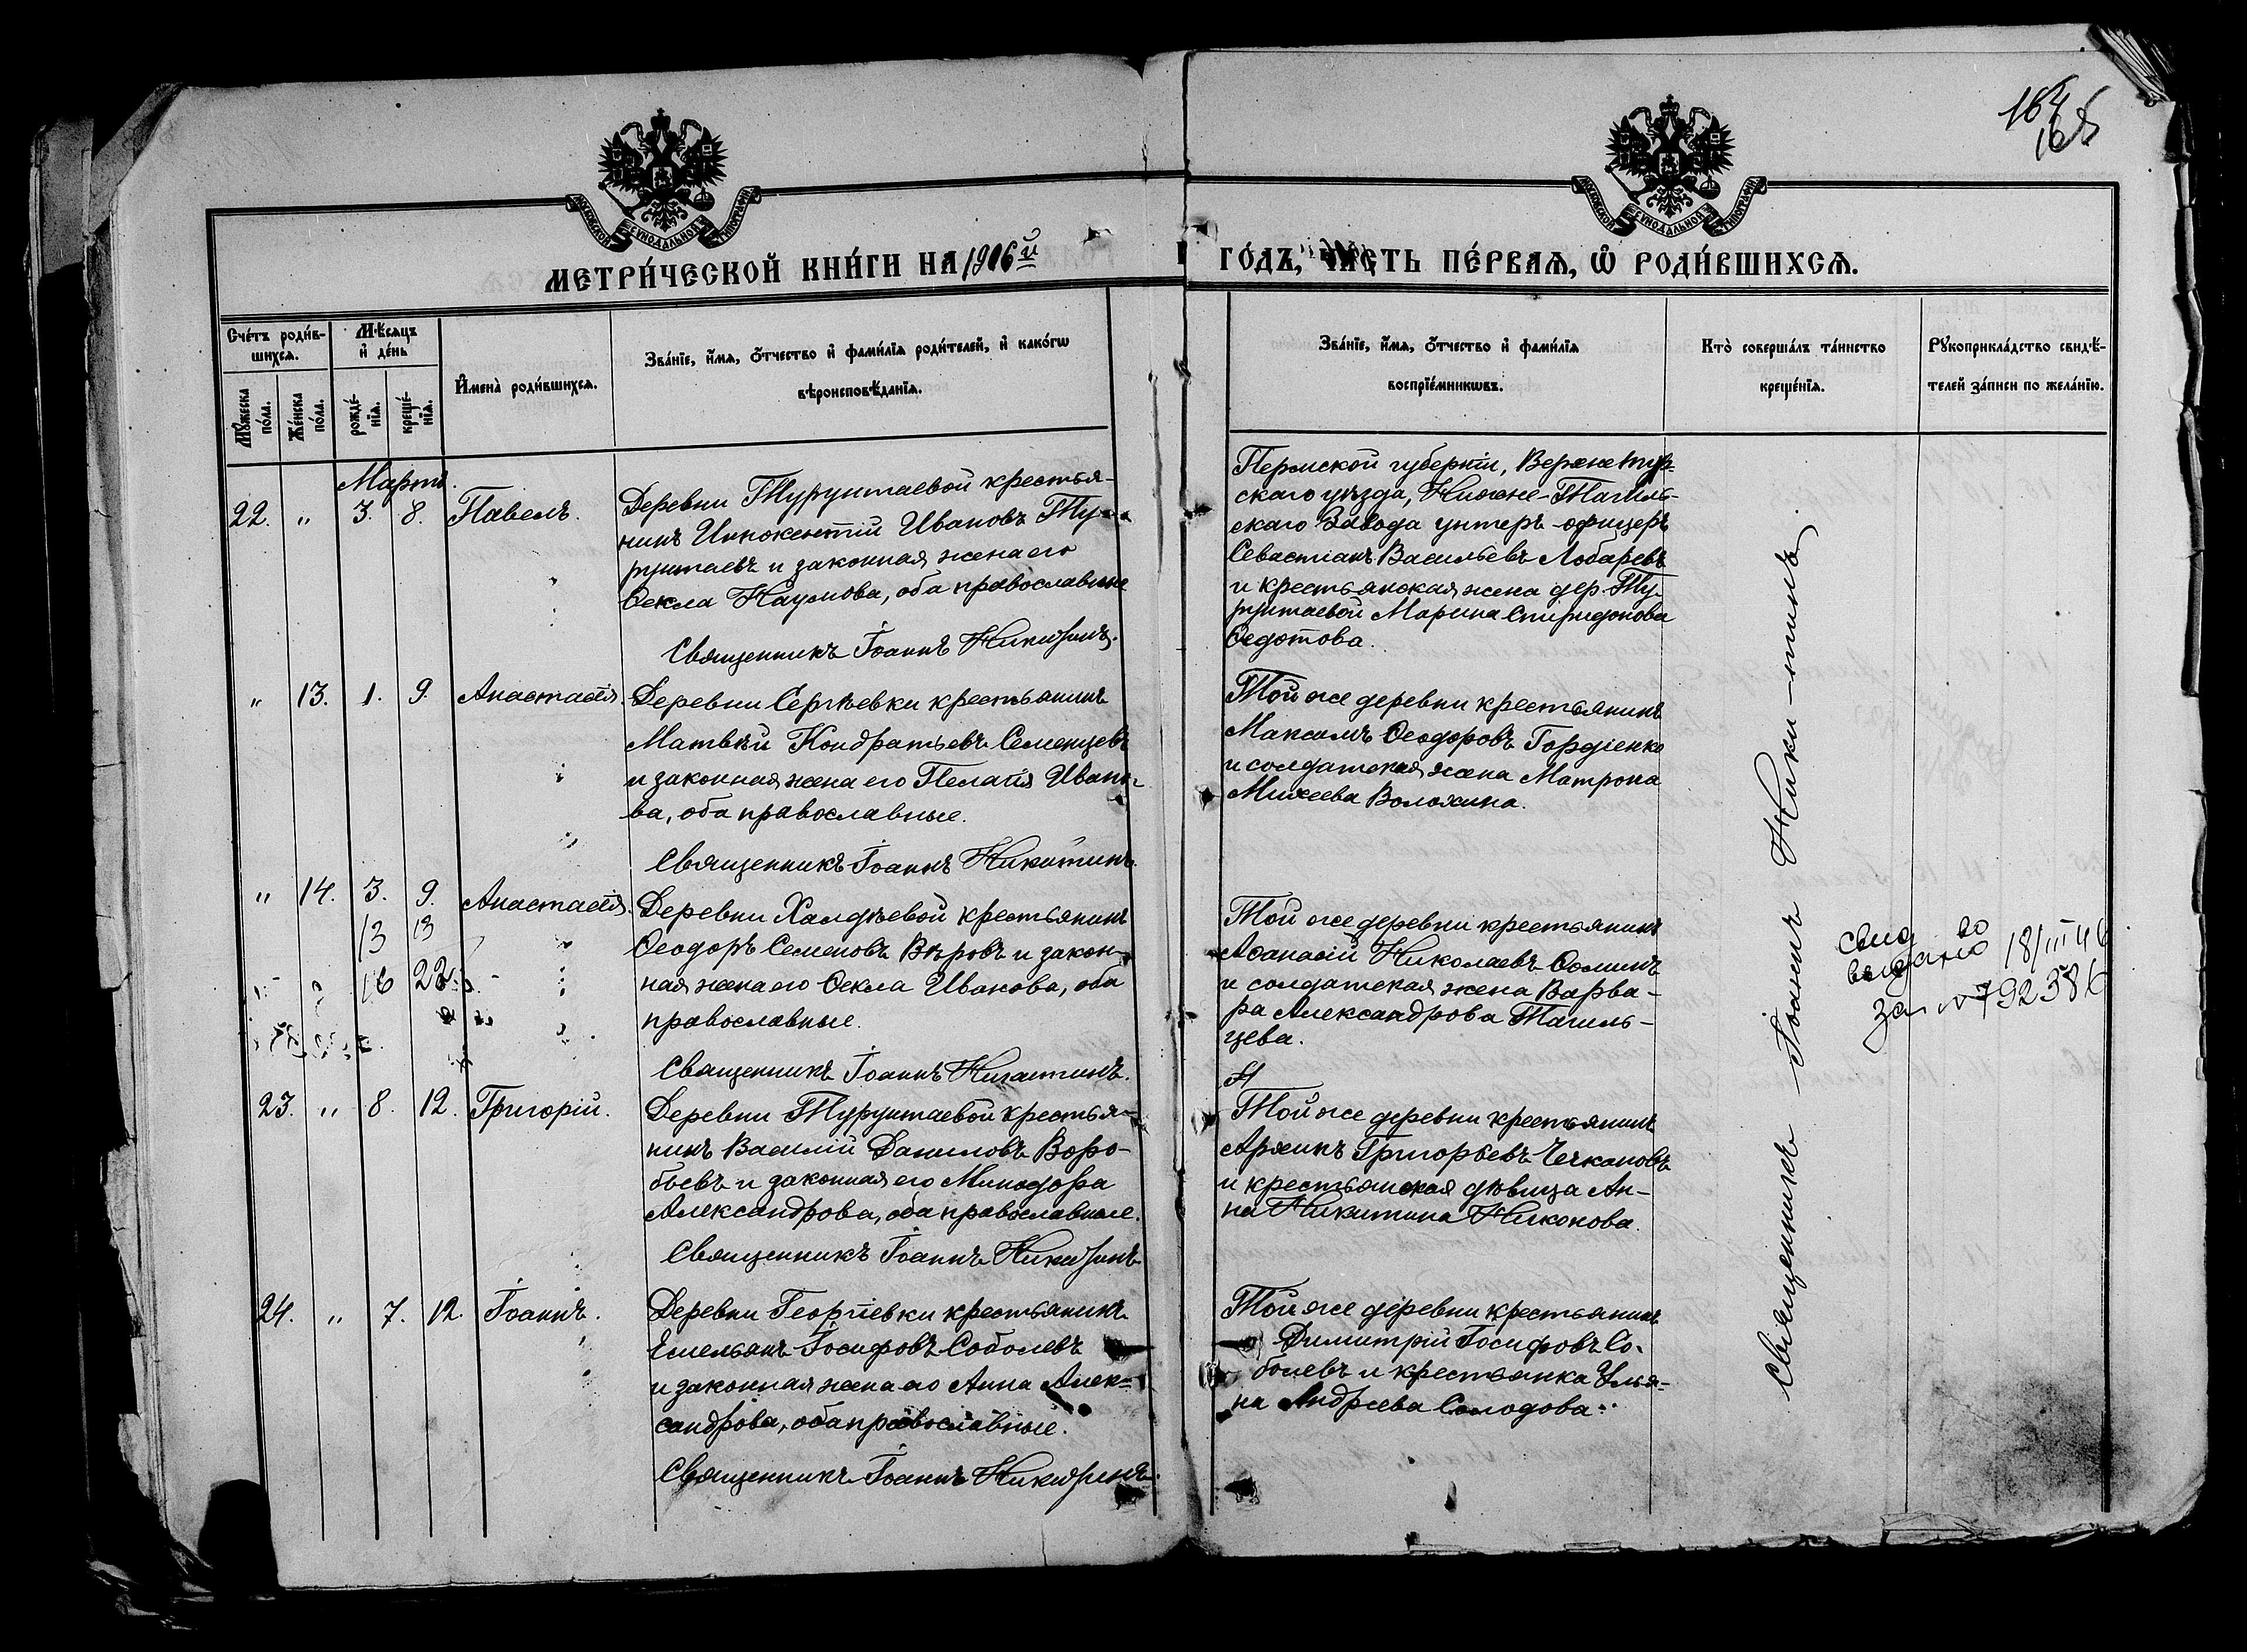 164
165
МОСКОВСКОЙ СУНОДАЛЬНОЙ ТИПОГРАФІИ
МОСКОВСКОЙ СУНОДАЛЬНОЙ ТИПОГРАФІИ
МЕТРИ́ЧЕСКОЙ КНИ́ГИ НА 1906й
ГО́ДЪ, ЧАСТЬ ПЕ́РВАѦ, Ѡ РОДИ́ВШИХСѦ.
Сче́тъ роди́в-
шихся.
Мꙋжеска
по́ла.
Же́нска
по́ла.
Мѣ́сяцъ
и҆ де́нь
рожде́-
нїя.
креще́-
нїя.
И҆мена̀ роди́вшихся.
Зва́нїе, и҆́мя, ѻ҆́тчество и҆ фами́лїя роди́телей, и҆ како́гѡ
вѣроисповѣ́данїя.
Зва́нїе, и҆́мя, ѻ҆́тчество и҆ фами́лїя
воспрїе́мникѡвъ.
Кто̀ соверша́лъ та́инство
креще́нїя.
Рꙋкоприкла́дство свидѣ́-
телей за́писи по жела́нїю.
Мартъ.
22. " 3. 8. Павелъ.
Деревни Турунтаевой крестья-
нинъ Иннокентій Ивановъ Ту-
рунтаевъ и законная жена его
Ѳекла Наумова, оба православные
Священникъ Іоаннъ Никитинъ.
Пермской губерніи, Верхнетур-
скаго уѣзда, Нижне-Тагиль-
скаго Завода унтеръ-офицеръ
Севастіанъ Васильевъ Лобаревъ
и крестьянская жена дер. Ту-
рунтаевой Марина Спиридонова
Ѳедотова.
" 13. 1. 9. Анастасія.
Деревни Сергѣевки крестьянинъ
Матвѣй Кондратьевъ Семенцевъ
и законная жена его Пелагія Ивано-
ва, оба православные.
Священникъ Іоаннъ Никитинъ.
Той же деревни крестьянинъ
Максимъ Ѳеодоровъ Гордіенко
и солдатская жена Матрона
Михеева Воложина.
" 14. 3. 9. Анастасія.
13 13
16 22
Деревни Халдѣевой крестьянинъ
Ѳеодоръ Семеновъ Вѣровъ и закон-
ная жена его Ѳекла Иванова, оба
православные.
Священникъ Іоаннъ Никитинъ.
Той же деревни крестьянинъ
Аѳанасій Николаевъ Ѳоминъ
и солдатская жена Варва-
ра Александрова Тагиль-
цева.
23. " 8. 12. Григорій.
Деревни Турунтаевой крестья-
нинъ Василій Даниловъ Воро-
бьевъ и законная его Минодора
Александрова, оба православные.
Священникъ Іоаннъ Никитинъ
Той же деревни крестьянинъ
Архипъ Григорьевъ Чекановъ
и крестьянская дѣвица Ан-
на Никитина Никонова.
24. " 7. 12. Іоаннъ.
Деревни Георгіевки крестьянинъ
Емельянъ Іосифовъ Соболевъ
и законная жена его Анна Алек-
сандрова, оба православные.
Священникъ Іоаннъ Никитинъ.
Той же деревни крестьянинъ
Димитрій Іосифовъ Со-
болевъ и крестьянка Улья-
на Андреева Солодова.
Священникъ Іоаннъ Ники-тинъ
свид во
выдано 18/III 46
за №792386